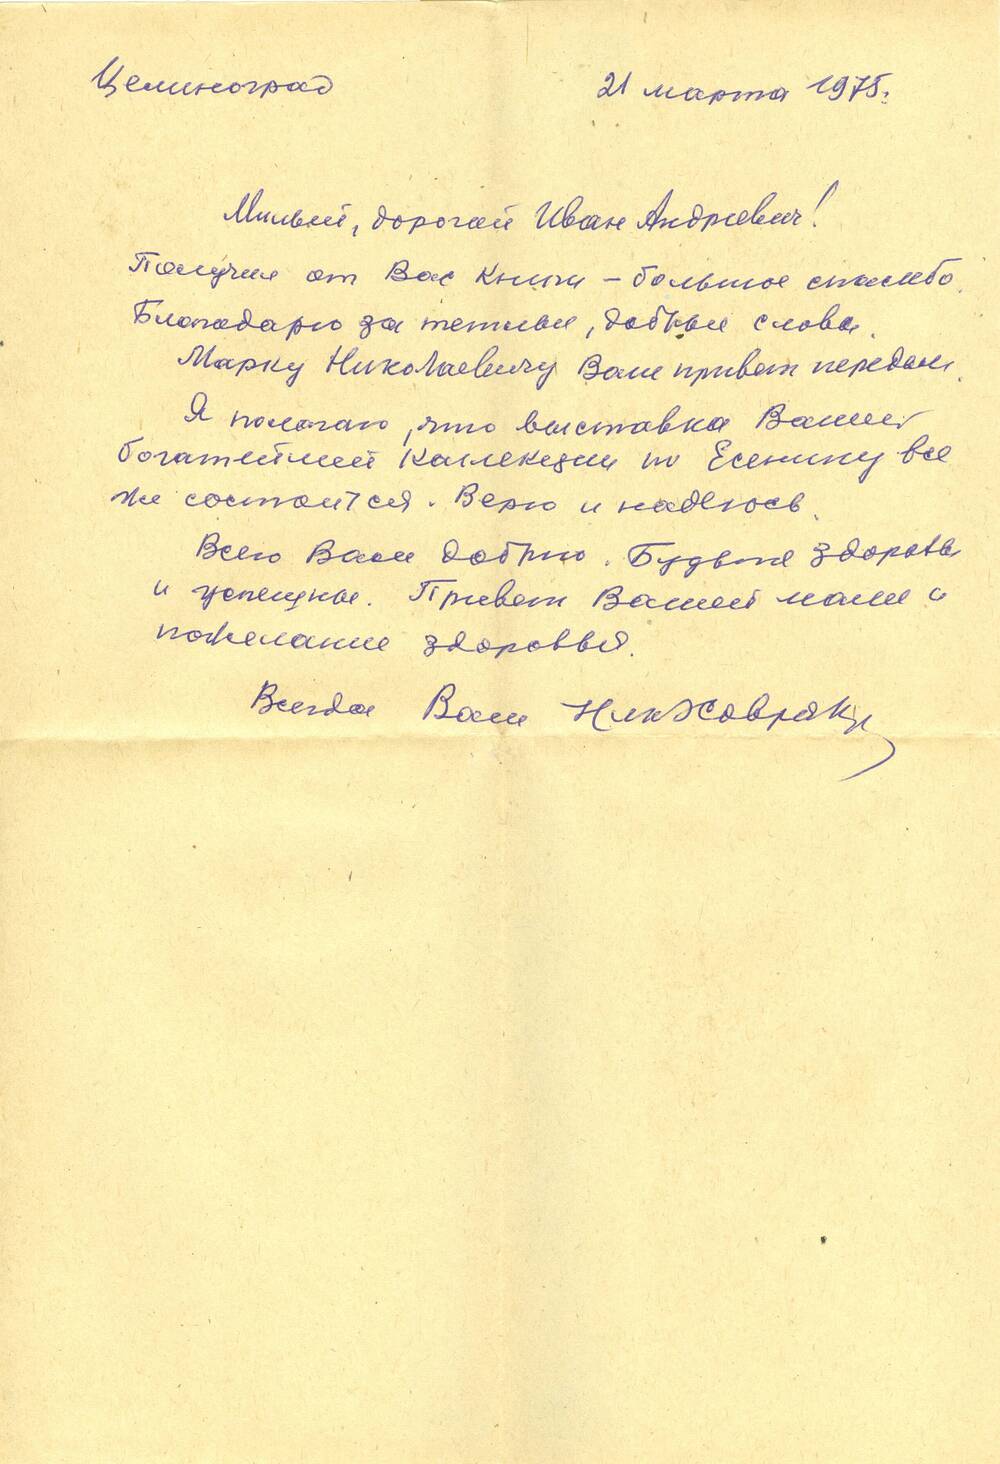 Целиноград 21 марта 1975г.
Милый, дорогой Иван Андреевич!
Получил от Вас книги – большое спасибо.
Благодарю за теплые, добрые слова.
Марку Николаевичу Ваш привет передам.
Я полагаю, что выставка Вашей
богатейшей коллекции по Есенину все
же состоится. Верю и надеюсь.
Всего Вам доброго. Будьте здоровы
и успешны. Привет Вашей маме и
пожелание здоровья.
Всегда Ваш Ник